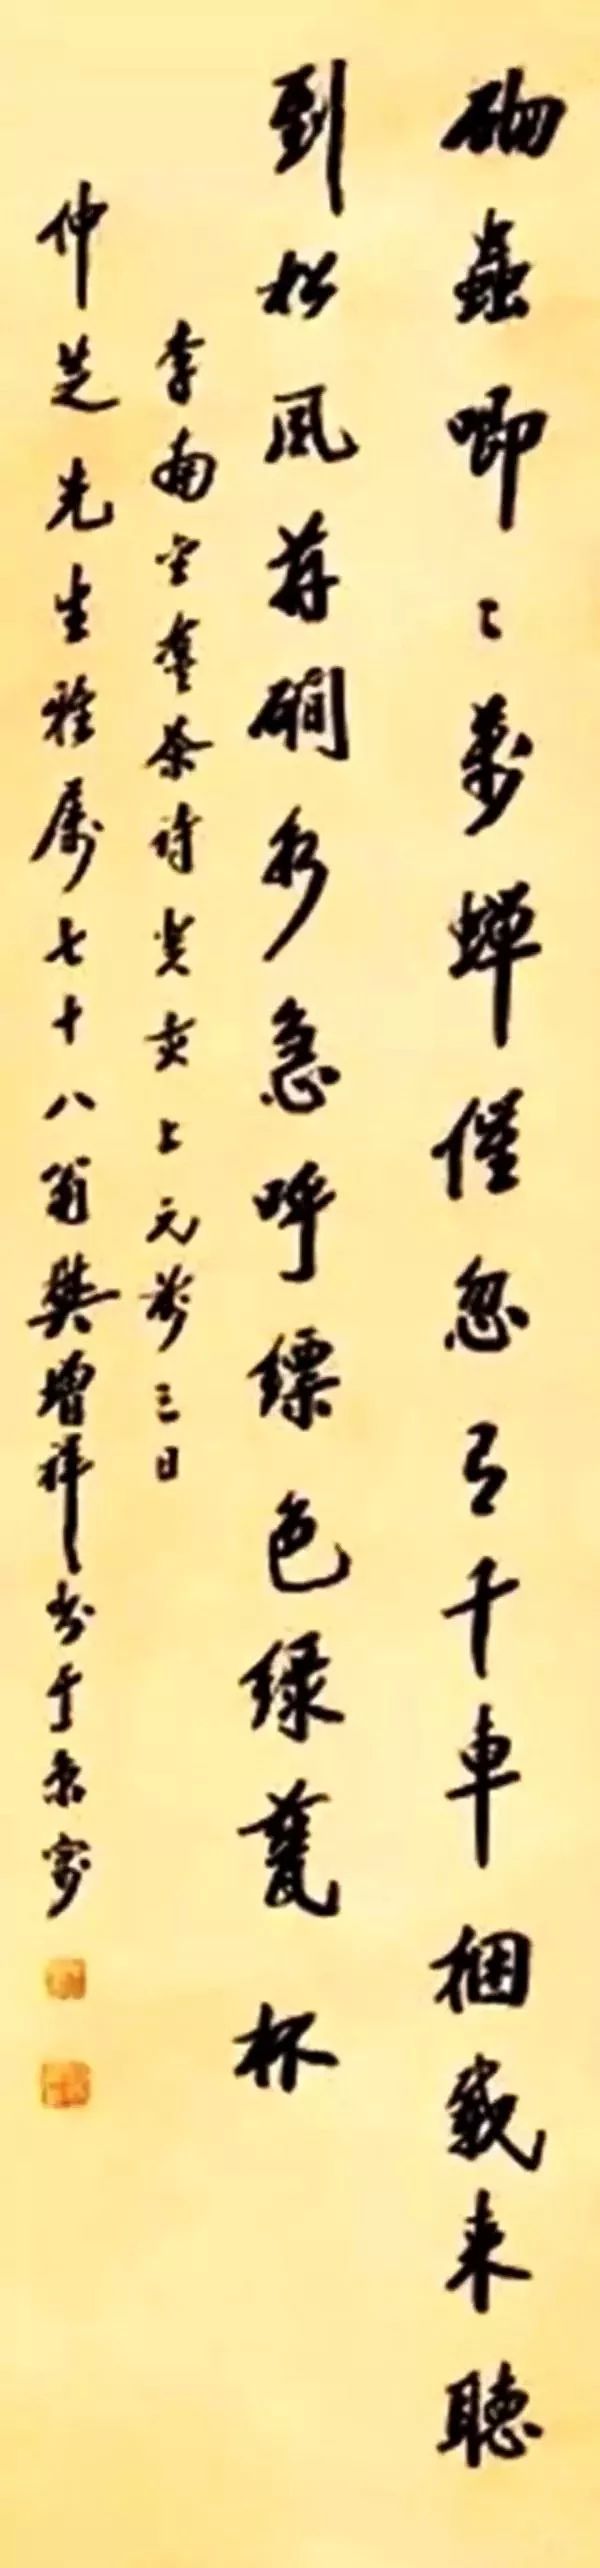 砌蟲唧〻萬蟬催忽有千車梱載來聽
到松風并磵水急呼縹色綠甆杯
李南金茶詩癸亥上元前三日
仲芝先生雅屬七十八翁樊增祥書于京寓